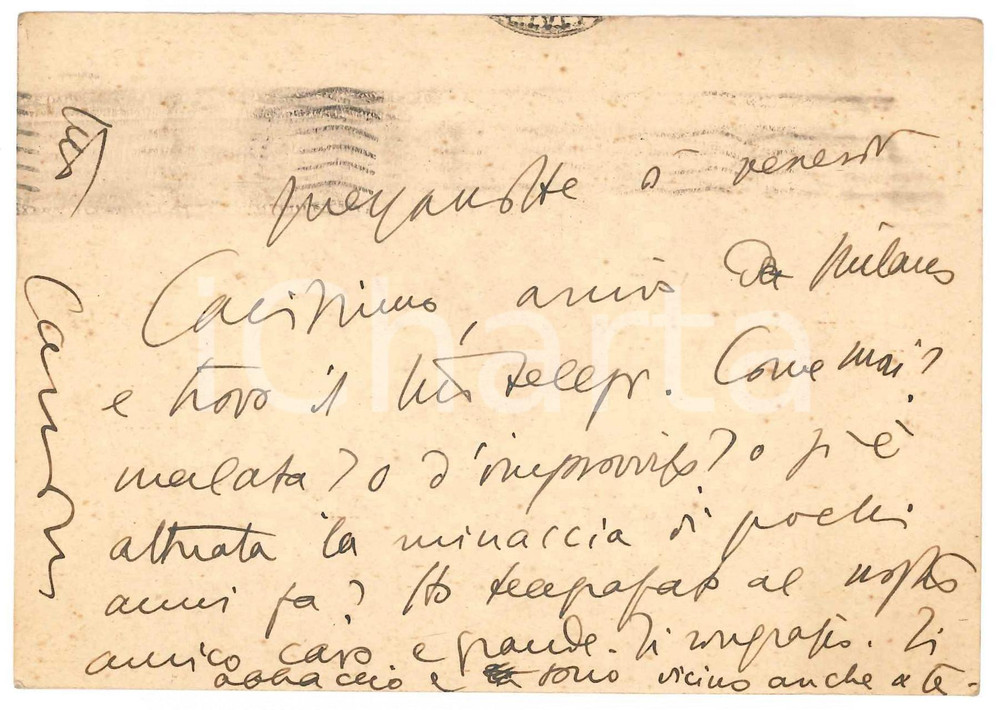 mezzanotte di venerdì
Carissimo, arrivo da Milano
e trovo il tuo telegr. Come mai?
malata? o d'improvviso? o si è
attuata la minaccia di pochi
anni fa? Ho telegrafato al nostro
amico caro e grande. Ti ringrazio. Ti
abbraccio e sono vicino anche a te.
tuo
iCharta